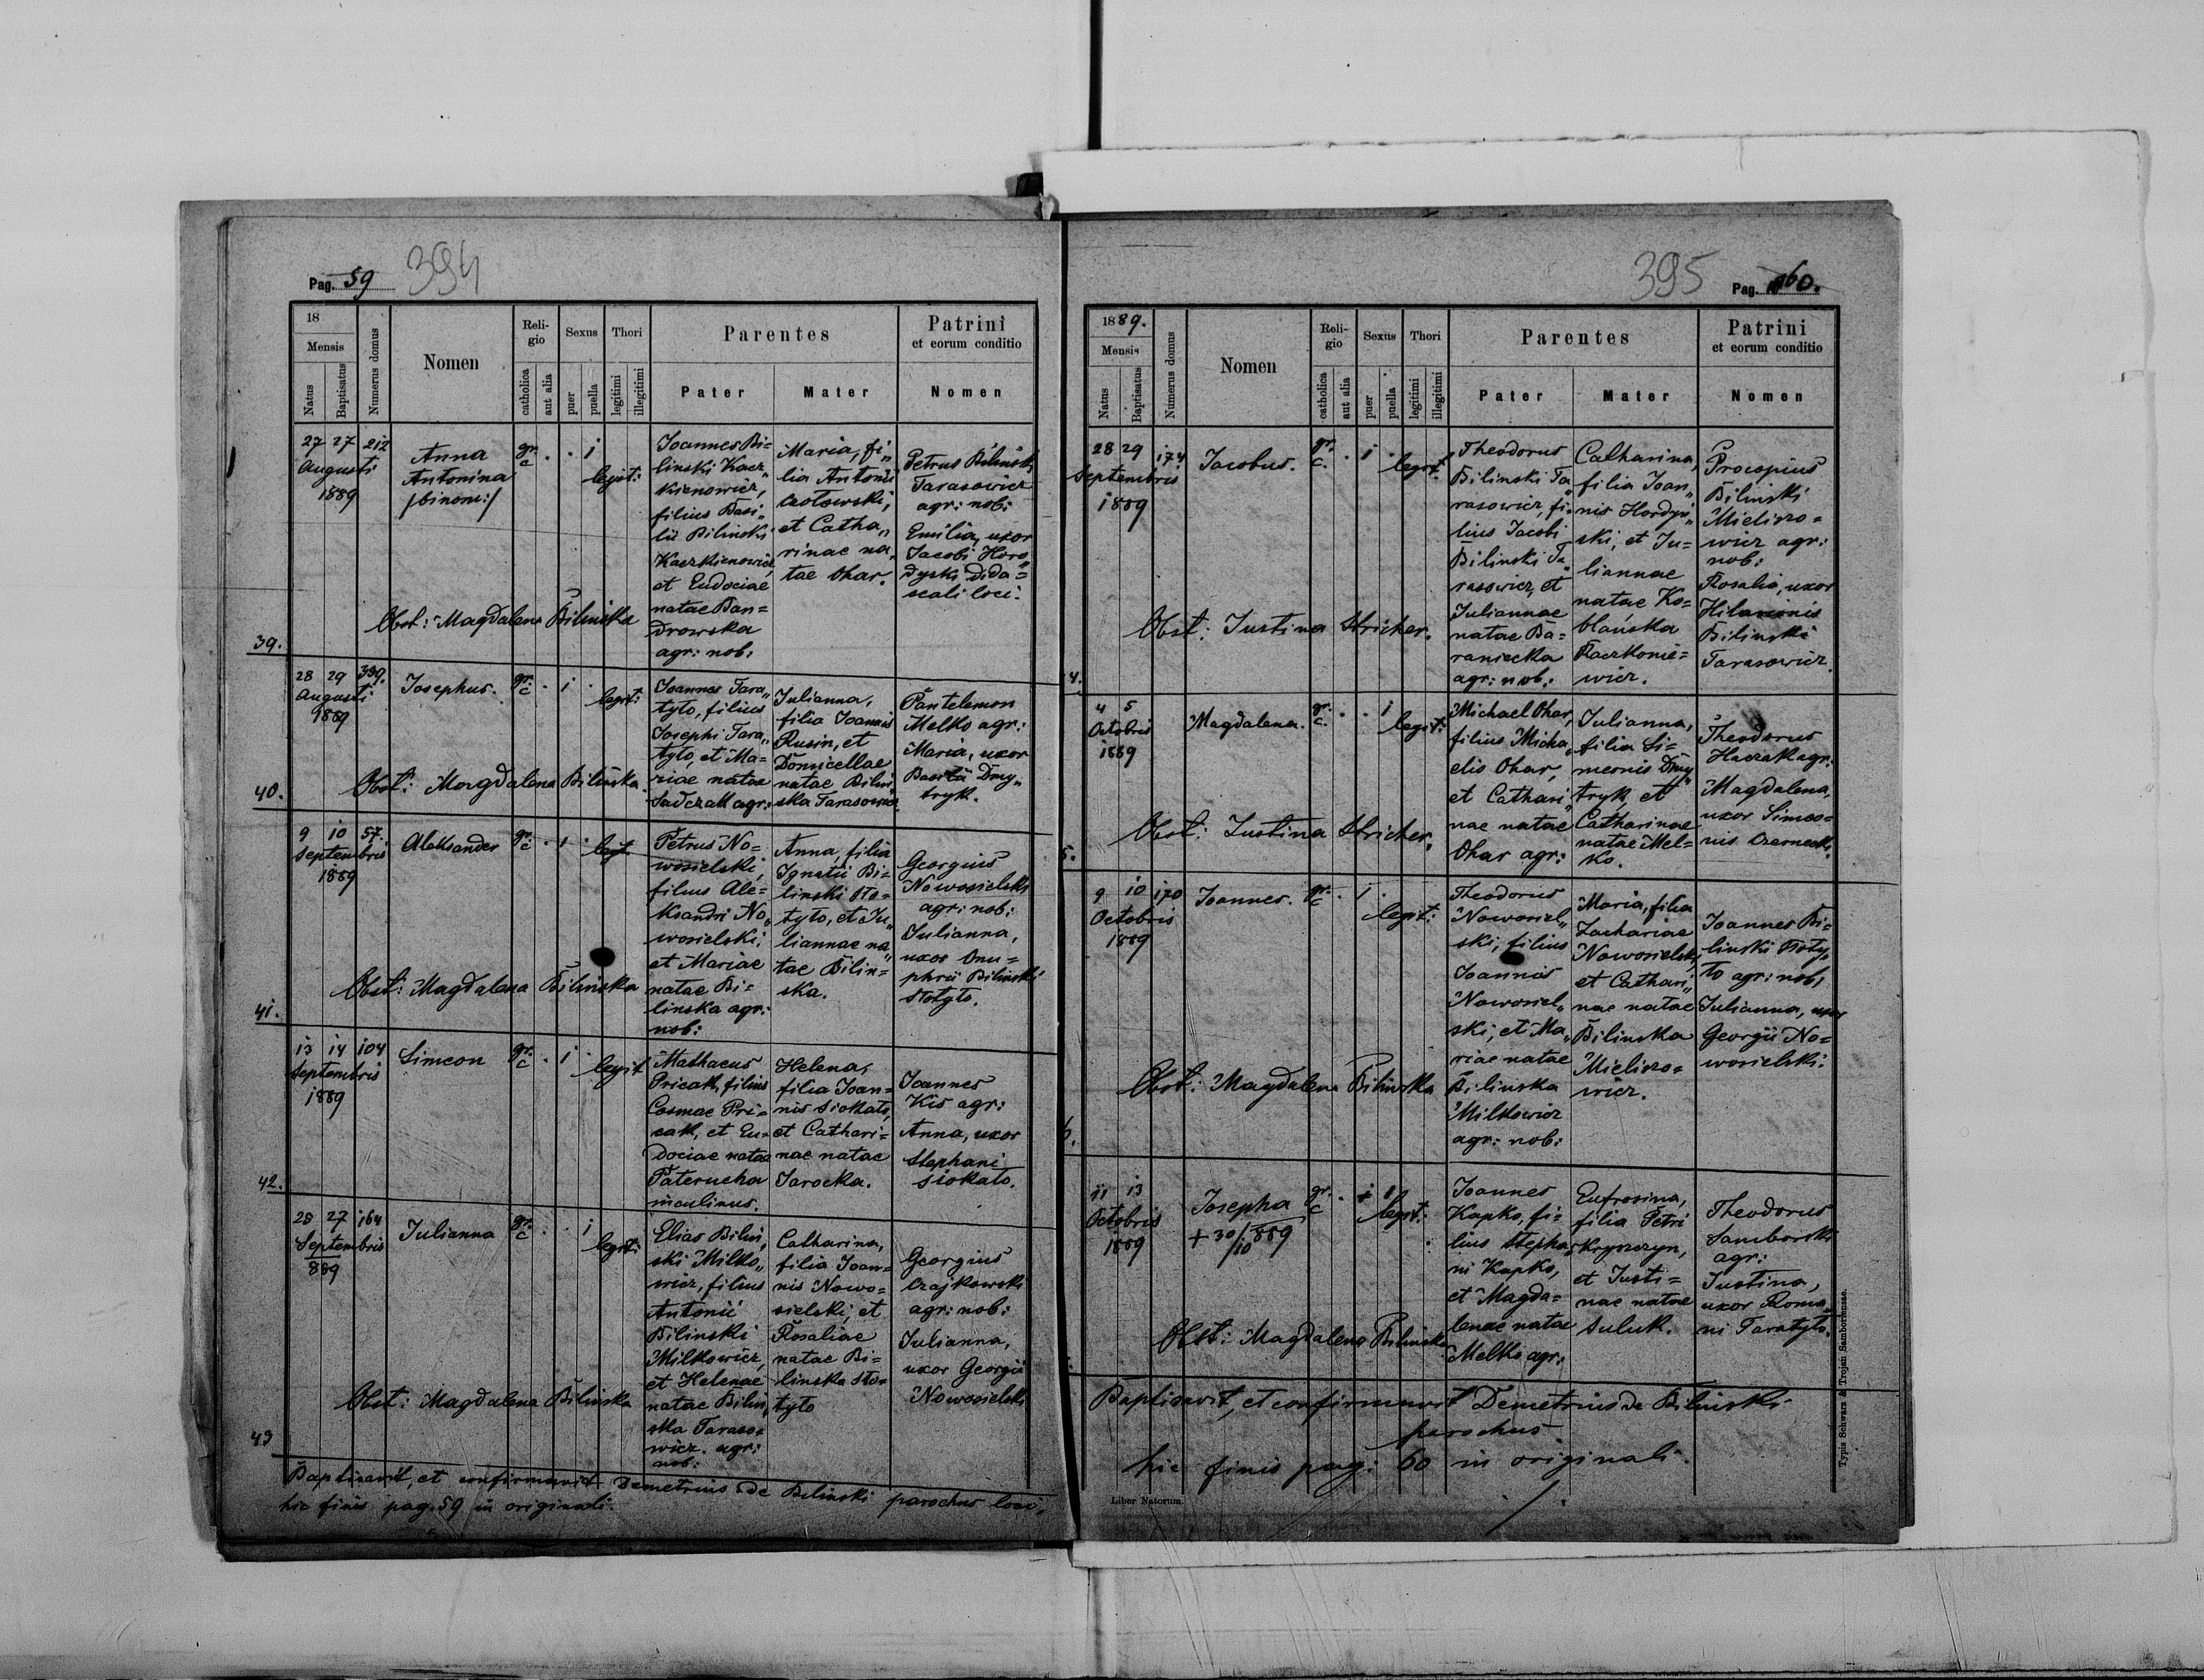 Pag. 59 394
18
Mensis
Natus
Baptisatus
Numerus domus
Nomen
Reli-
gio
catholica
aut alia
Sexus
puer
puella
Thori
legitimi
illegitimi
Parentes
Pater
Mater
Patrini
et eorum conditio
Nomen
39.
27 27 212
Augusti
1889
Anna
Antonina
/:binom:/
gr.
c
. . i
legit:
Joannes Bi=
linski Kacz„
kienowicz,
filius Basi„
lii Bilinski
Kaczkienowicz,
et Eudociae
natae Ban=
drowska
agr: nob:
Maria, fi„
lia Antonii
et Catha„
rinae na„
tae Ohar.
Petrus Bilinski
Tarasowicz
agr: nob:
Emilia, uxor
Jacobi Horo„
dyski dida=
scali loci.
Obst: Magdalena Bilinska
40.
28 29 339.
Augusti
1889
Josephus.
gr.
c
. i .
legit:
Joannes Tara„
tyto, filius
Josephi Tara„
tyto, et Ma=
riae natae
Sadczak agr:
Julianna,
filia Joannis
Rusin, et
Domicellae
natae Bilin„
ska Tarasowicz
Pantelemon
Melko agr:
Maria, uxor
Basilii Dmy„
tryk.
Obst: Magdalena Bilinska.
41.
9 10 57.
Septembris
1889
Aleksander
gr.
c
. i .
legt
Petrus No=
wosielski,
filius Ale=
ksandri No„
wosielski,
et Mariae
natae Bi=
linska agr:
nob:
Anna, filia
Ignatii Bi=
linski Sto=
tyto, et Ju„
liannae na„
tae Bilin=
ska.
Georgius
Nowosielski
agr: nob:
Julianna,
uxor Onu=
phrii Bilinski
Stotyto.
Obst: Magdalena Bilinska
42.
13 14 104
Septembris
1889
Simeon
gr.
c
. i .
legit
Mathaeus
Pricak, filius
Cosmae Pri=
cak, et Eu=
dociae natae
Paterucha
inculinus.
Helena,
filia Joan=
nis Siokato,
et Cathari=
nae natae
Jarocka.
Joannes
Kis agr:
Anna, uxor
Stephani
Siokato.
43
25 27 164
Septembris
889
Julianna
gr.
c
. . i
legit:
Elias Bilin„
ski Milko„
wicz, filius
Antonii
Bilinski
Milkowicz,
et Helenae
natae Bilin„
ska Taraso=
wicz. agr:
nob:
Catharina,
filia Joan=
nis Nowo=
sielski, et
Rosaliae
natae Bi=
linska Sto=
tyto
Georgius
Czajkowski
agr: nob:
Julianna,
uxor Georgii
Nowosielski
Obst: Magdalena Bilinska
Baptisavit, et confirmavit Demetrius de Bilinski parochus loci„
hic finis pag. 59 in originali.
395 Pag. 60.
1889.
Mensis
Natus
Baptisatus
Numerus domus
Nomen
Reli-
gio
catholica
aut alia
Sexus
puer
puella
Thori
legitimi
illegitimi
Parentes
Pater
Mater
Patrini
et eorum conditio
Nomen
4.
28 29 174.
Septembris
1889
Jacobus.
gr.
c.
. i .
legit.
Theodorus
Bilinski Ta„
rasowicz, fi=
lius Jacobi
Bilinski Ta„
rasowicz, et
Juliannae
natae Ba=
raniecka
agr: nob:
Catharina,
filia Joan„
nis Hordyń„
ski, et Ju=
liannae
natae Ko=
blańska
Raczkonie=
wicz.
Procopius
Bilinski
Mieliszo=
wicz agr:
nob:
Rosalia, uxor
Hilarionis
Bilinski
Tarasowicz.
Obst: Justina Stricher.
5.
4 5
Octobris
1889
Magdalena.
gr.
c.
. . i
legit:
Michael Ohar,
filius Micha„
elis Ohar,
et Cathari„
nae natae
Ohar agr:
Julianna,
filia Si=
meonis Dmy„
tryk, et
Catharinae
natae Mel=
ko.
Theodorus
Haczak agr:
Magdalena,
uxor Simeo=
nis
Obst: Justina Stricher.
6.
9 10 170
Octobris
1889
Joannes.
gr.
c
. i .
legit:
Theodorus
Nowosiel„
ski, filius
Joannis
Nowosiel„
ski, et Ma„
riae natae
Bilinska
Milkowicz
agr: nob:
Maria, filia
Zachariae
Nowosielski,
et Cathari„
nae natae
Bilinska
Mieliszo=
wicz.
Joannes Bi=
linski Stoty„
to agr: nob:
Julianna, uxor
Georgii No=
wosielski.
Obst: Magdalena Bilinska
11 13
Octobris
1889
Josepha
+ 30/10 889
gr.
c
. i
legt:
Joannes
Kapko, fi=
lius Stepha„
ni Kapko,
et Magda=
lenae natae
Melko agr:
Eufrosina,
filia Petri
Kryszczyn,
et Justi=
nae natae
Suluk.
Theodorus
Samborski
agr:
Justina,
uxor Roma„
ni Taratyto.
Obst: Magdalena Bilinska
Baptisavit, et confirmavit Demetrius de Bilinski
parochus.
hic finis pag: 60 in originali.
Liber Natorum.
Typis Schwarz & Trojan Samborensae.